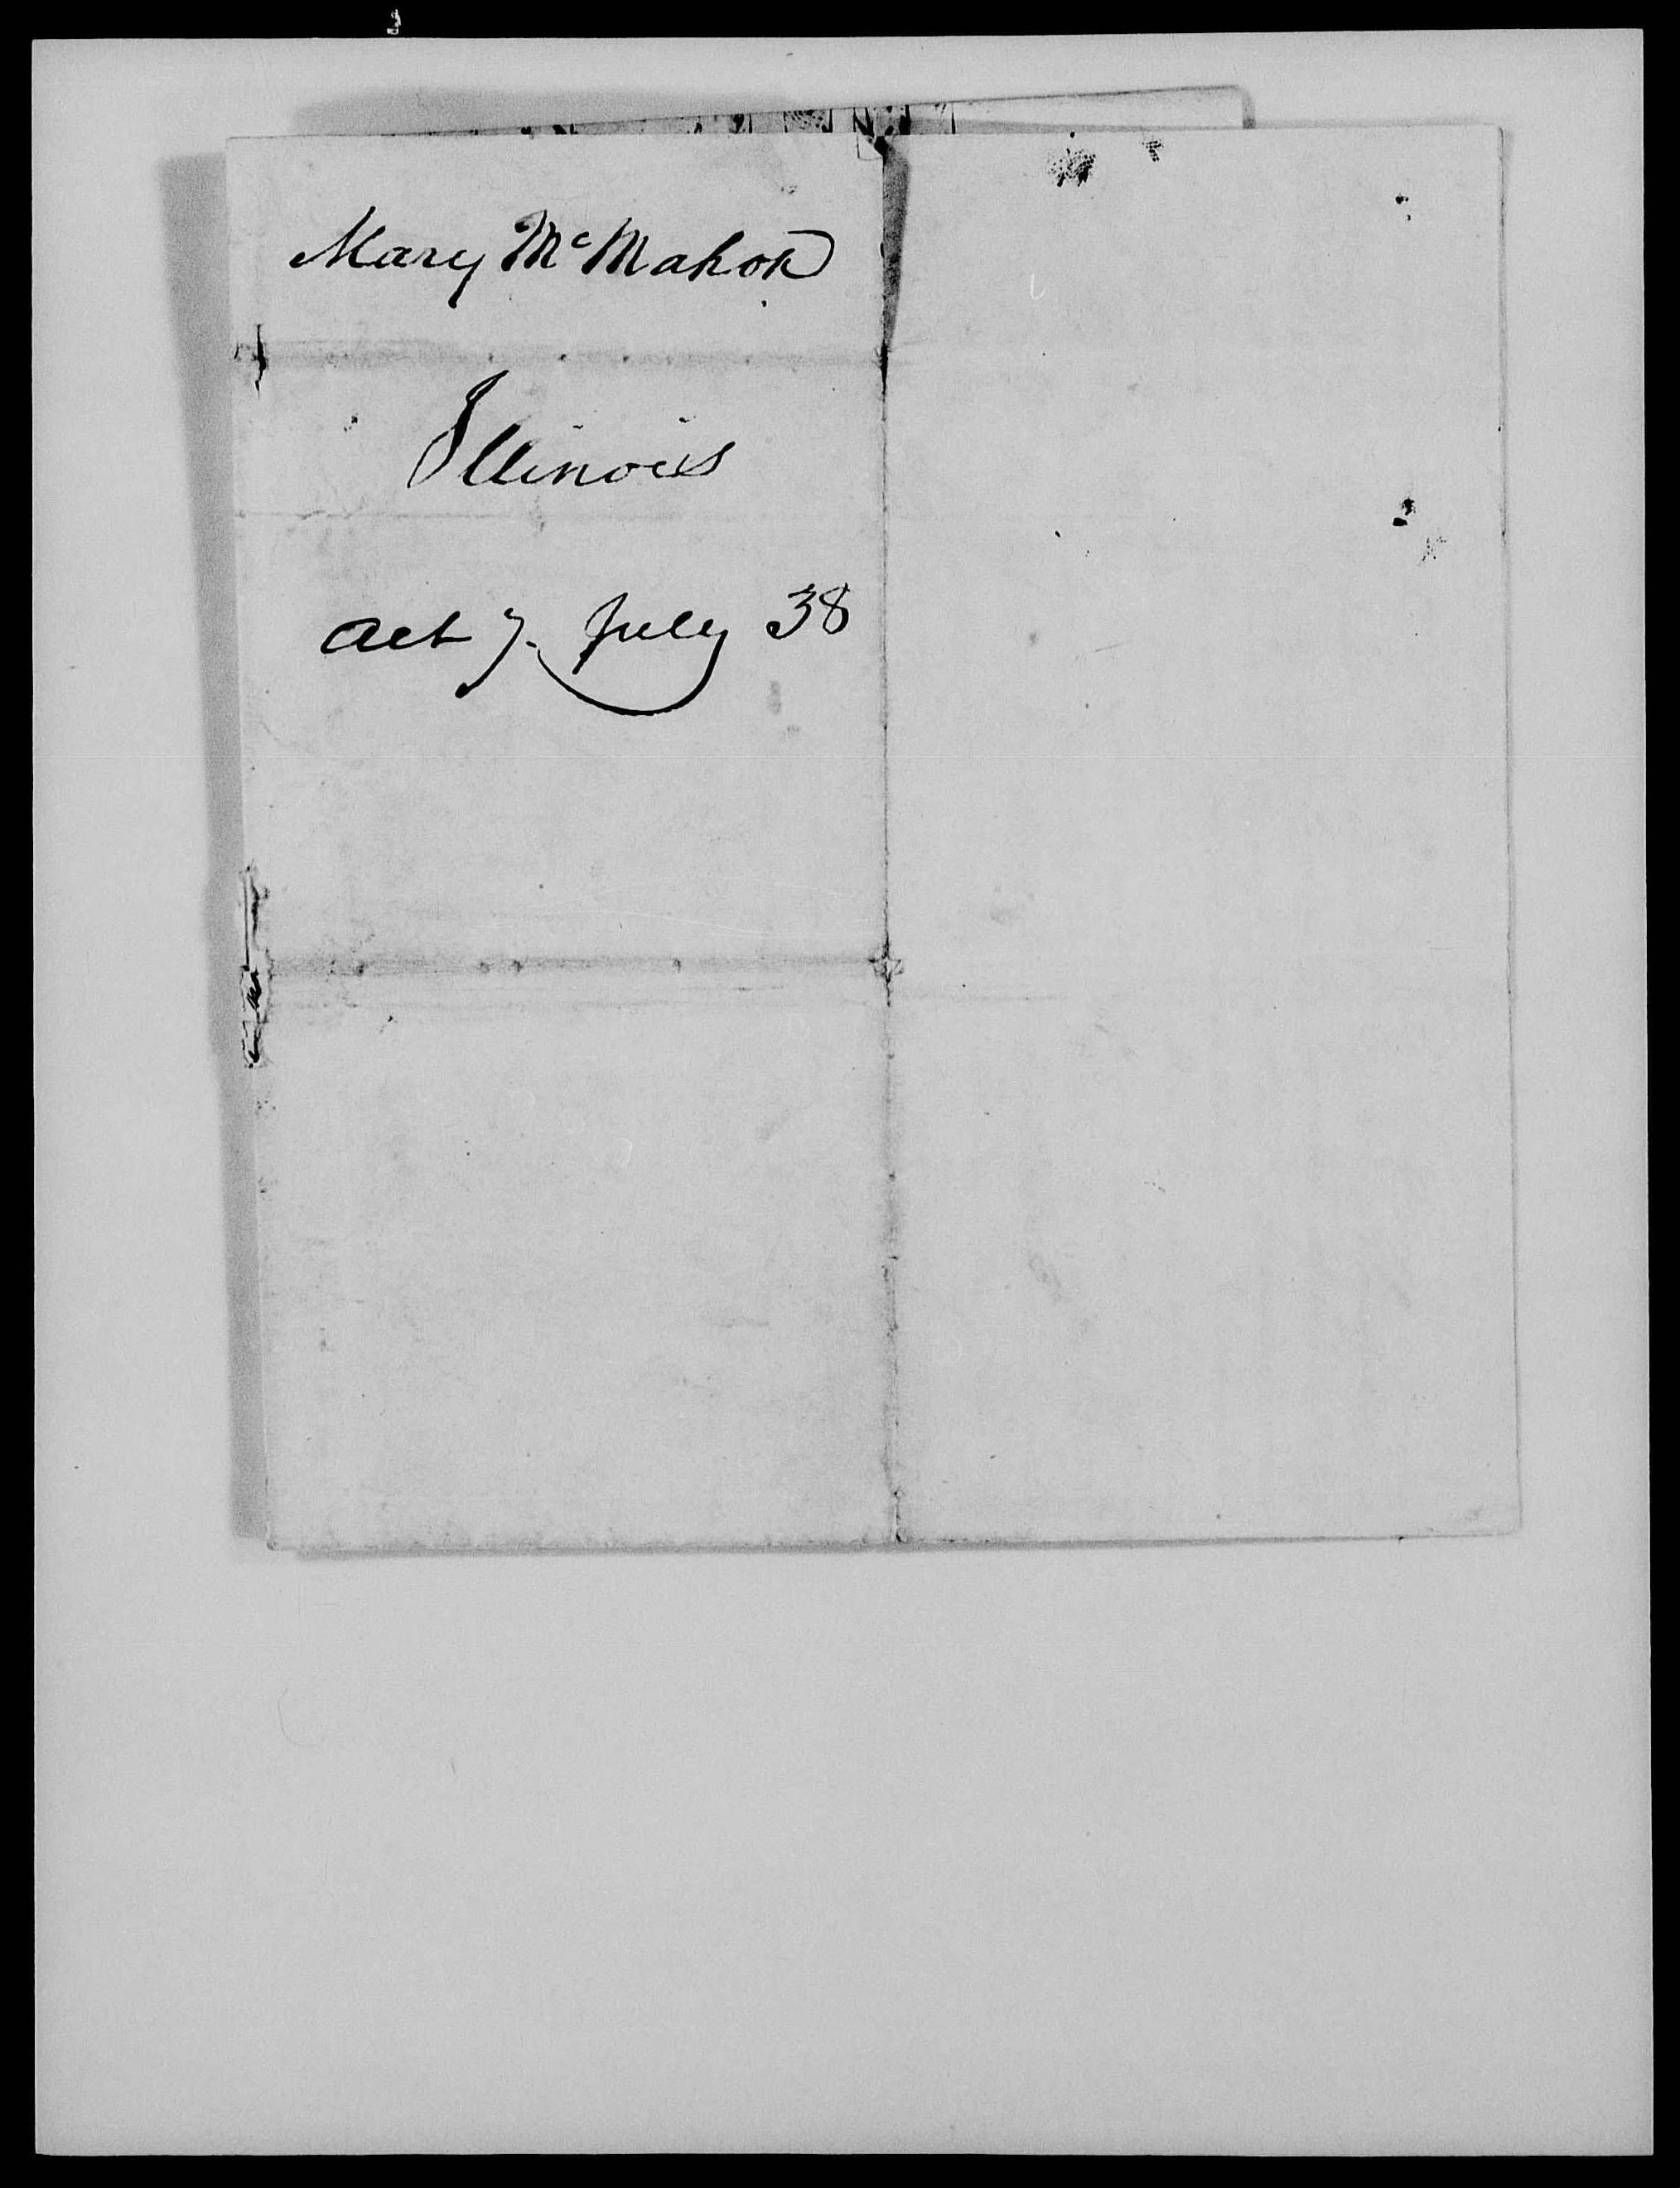 Mary McMahon
Illinois
Act 7. July 38